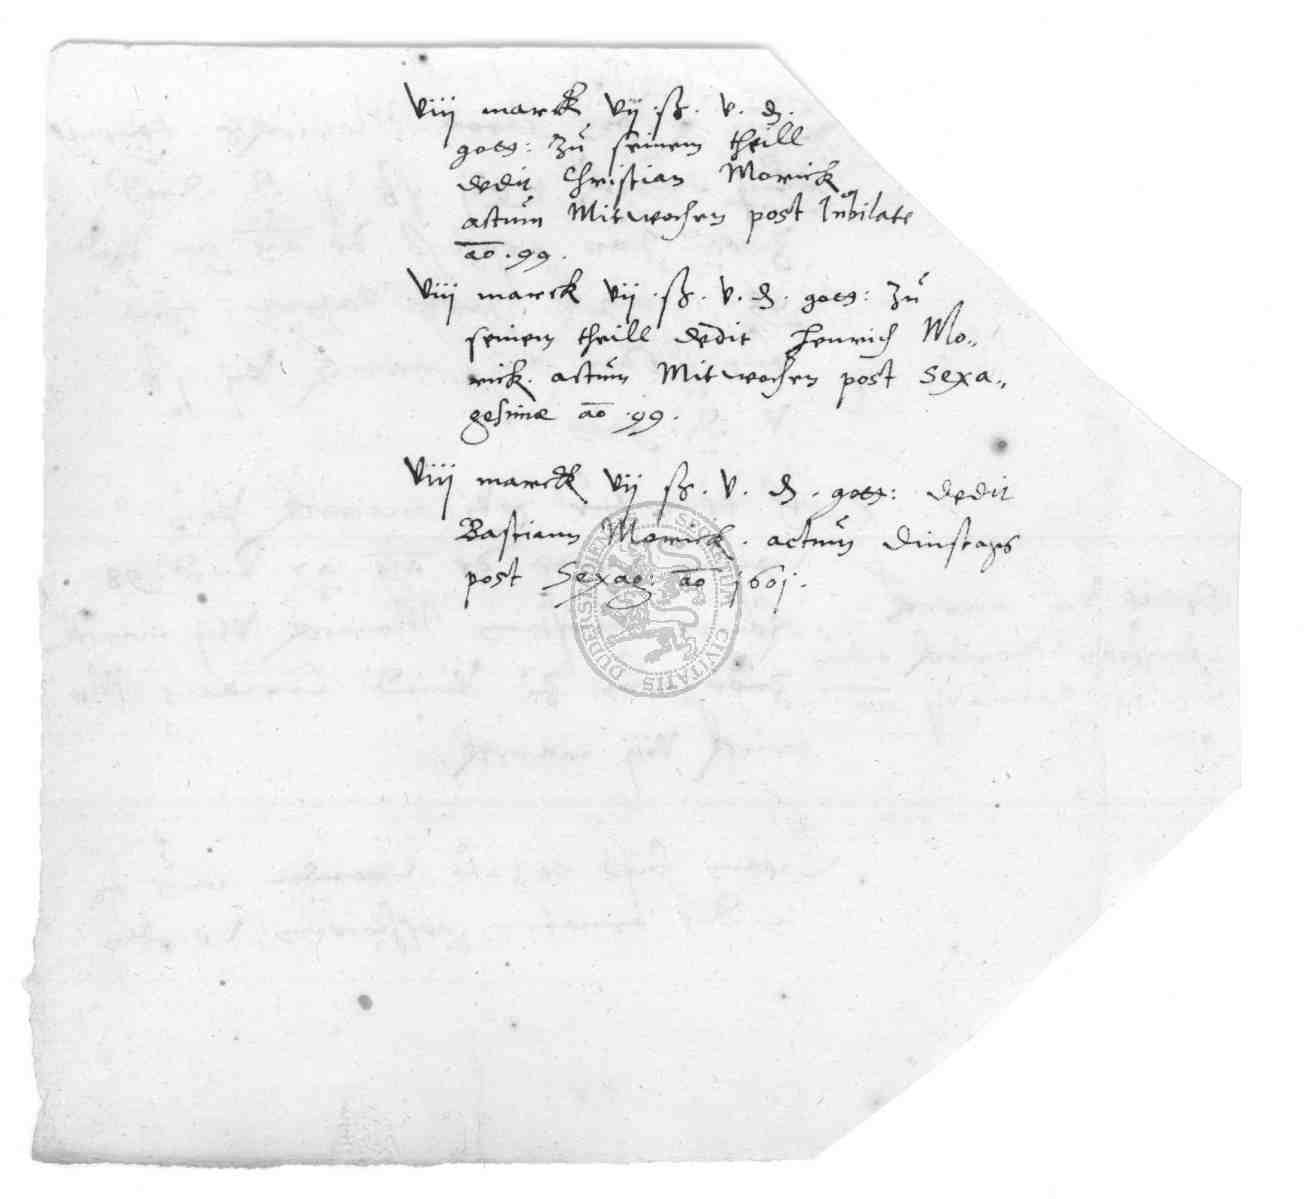 viij marck vij ß. v. ₰.
gotg: zu seinem theill
dedit Christian Morick
actum Mitwochen post Jubilate
ao. 99.
viij marck vij ß. v. ₰. gotg: zu
seinem theill dedit Henrich Mo„
rick. actum Mitwochen post Sexa„
gesimæ ao. 99.
viij marck vij ß. v. ₰. gotg: dedit
Bastiann Morick. actum Dinstags
post Sexag: ao 1601.
SECRETUM CIVITATIS DUDERSTADIENSIS